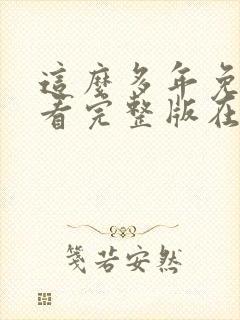 這麼多年免
看完整版在
箋若安然